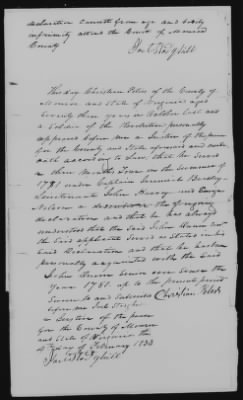 declaration cannot from age and bodily
infirmity attend the Court of Monroe
County
This day Christian Peters of the County of
Monroe and State of Virginia aged
Seventy three years in October last and
a Soldier of the Revolution personally
appeared before me a Justice of the peace
for the County and State aforesaid and made
oath according to Law, that he Served
a three Months Tour in the Summer of
1781 under Captain
Lieutenant John Henry and Ensign
declaration and that he has always
understood that the Said John
the Said applicant Served as Stated in his
Said Declaration and that he has been
personally acquainted with the Said
John ever Since the
Year 1780 up to the present period
Sworn to and Subscribed Christian Peters
before me
a Justice of the peace
for the County of Monroe
and State of Virginia the
day of February 1833